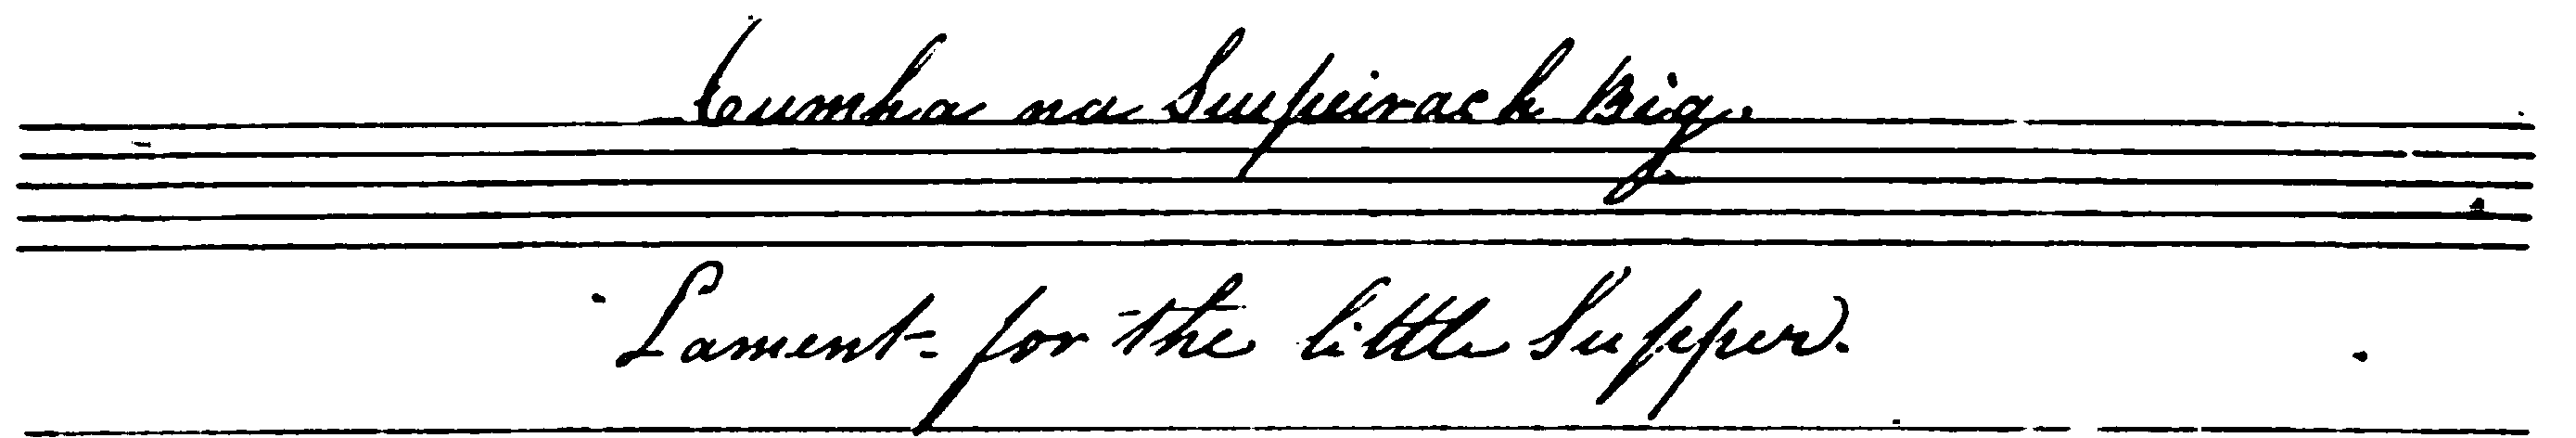 Cumha na Suipeirach Big.
Lament for the little Supper.